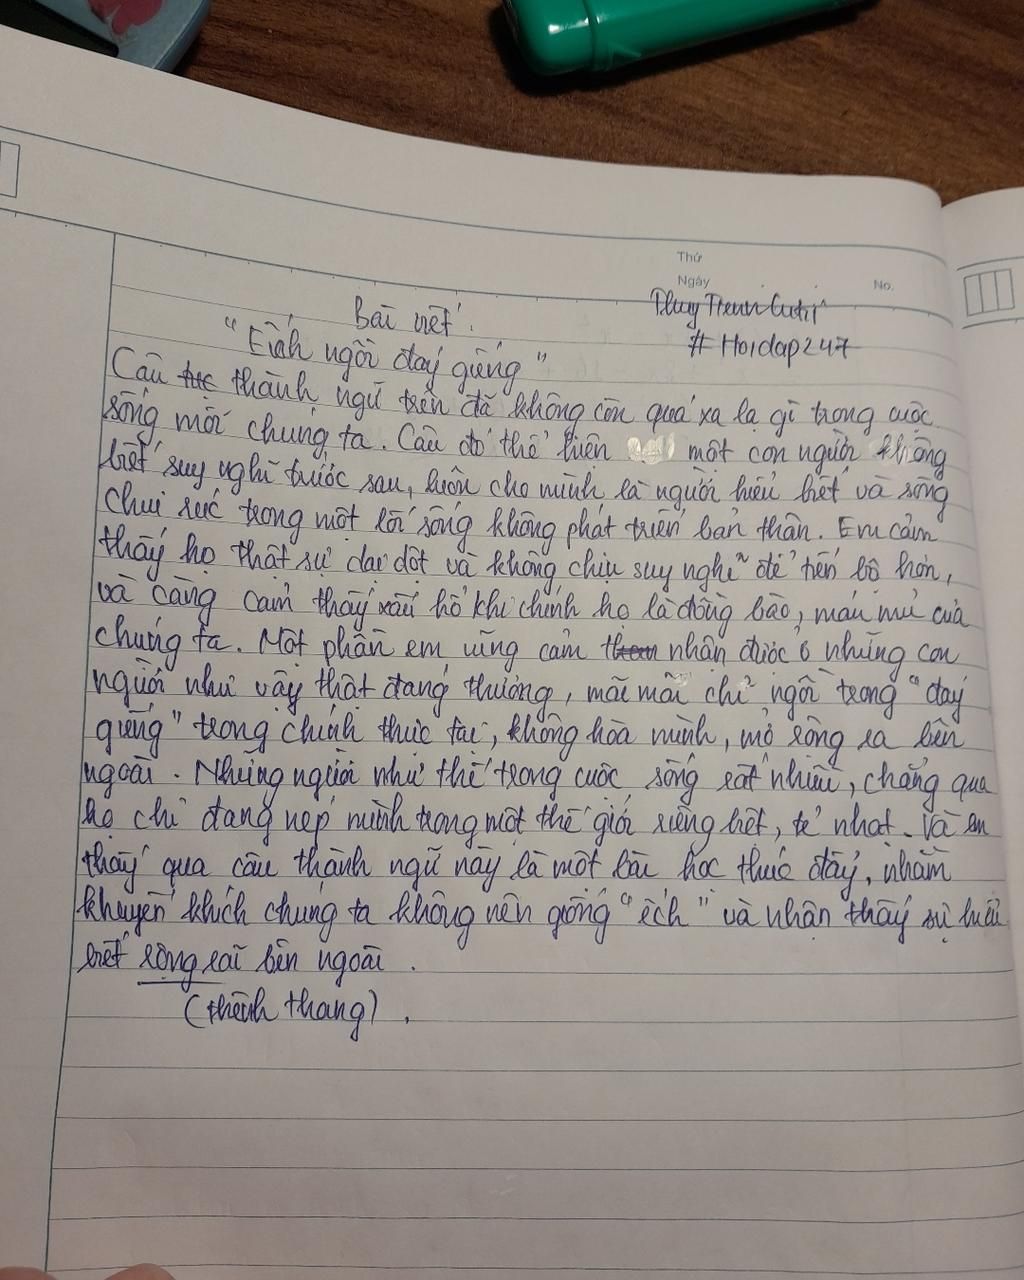 Thứ
Ngày
No.
Bài viết.
#Hoidap247
"Ếch ngồi đáy giếng"
Câu tục thành ngữ trên đã không còn quá xa lạ gì trong cuộc
sống mỗi chúng ta. Câu đó thể hiện một con người không
biết suy nghĩ trước sau, luôn cho mình là người hiểu biết và sống
chui rúc trong một lối sống không phát triển bản thân. Em cảm
thấy họ thật sự dại dột và không chịu suy nghĩ để tiến bộ hơn,
và càng cảm thấy xấu hổ khi chính họ là đồng bào, máu mủ của
chúng ta. Một phần em cũng cảm nhận được ở những con
người như vậy thật đáng thương, mãi mãi chỉ ngồi trong "đáy
giếng" trong chính thực tại, không hòa mình, mở rộng ra bên
ngoài. Những người như thế trong cuộc sống rất nhiều, chẳng qua
họ chỉ đang nép mình trong một thế giới riêng biệt, tẻ nhạt. Và em
thấy qua câu thành ngữ này là một bài học thúc đẩy, nhằm
khuyến khích chúng ta không nên giống "ếch" và nhận thấy sự hiểu
biết rộng rãi bên ngoài.
(thênh thang).